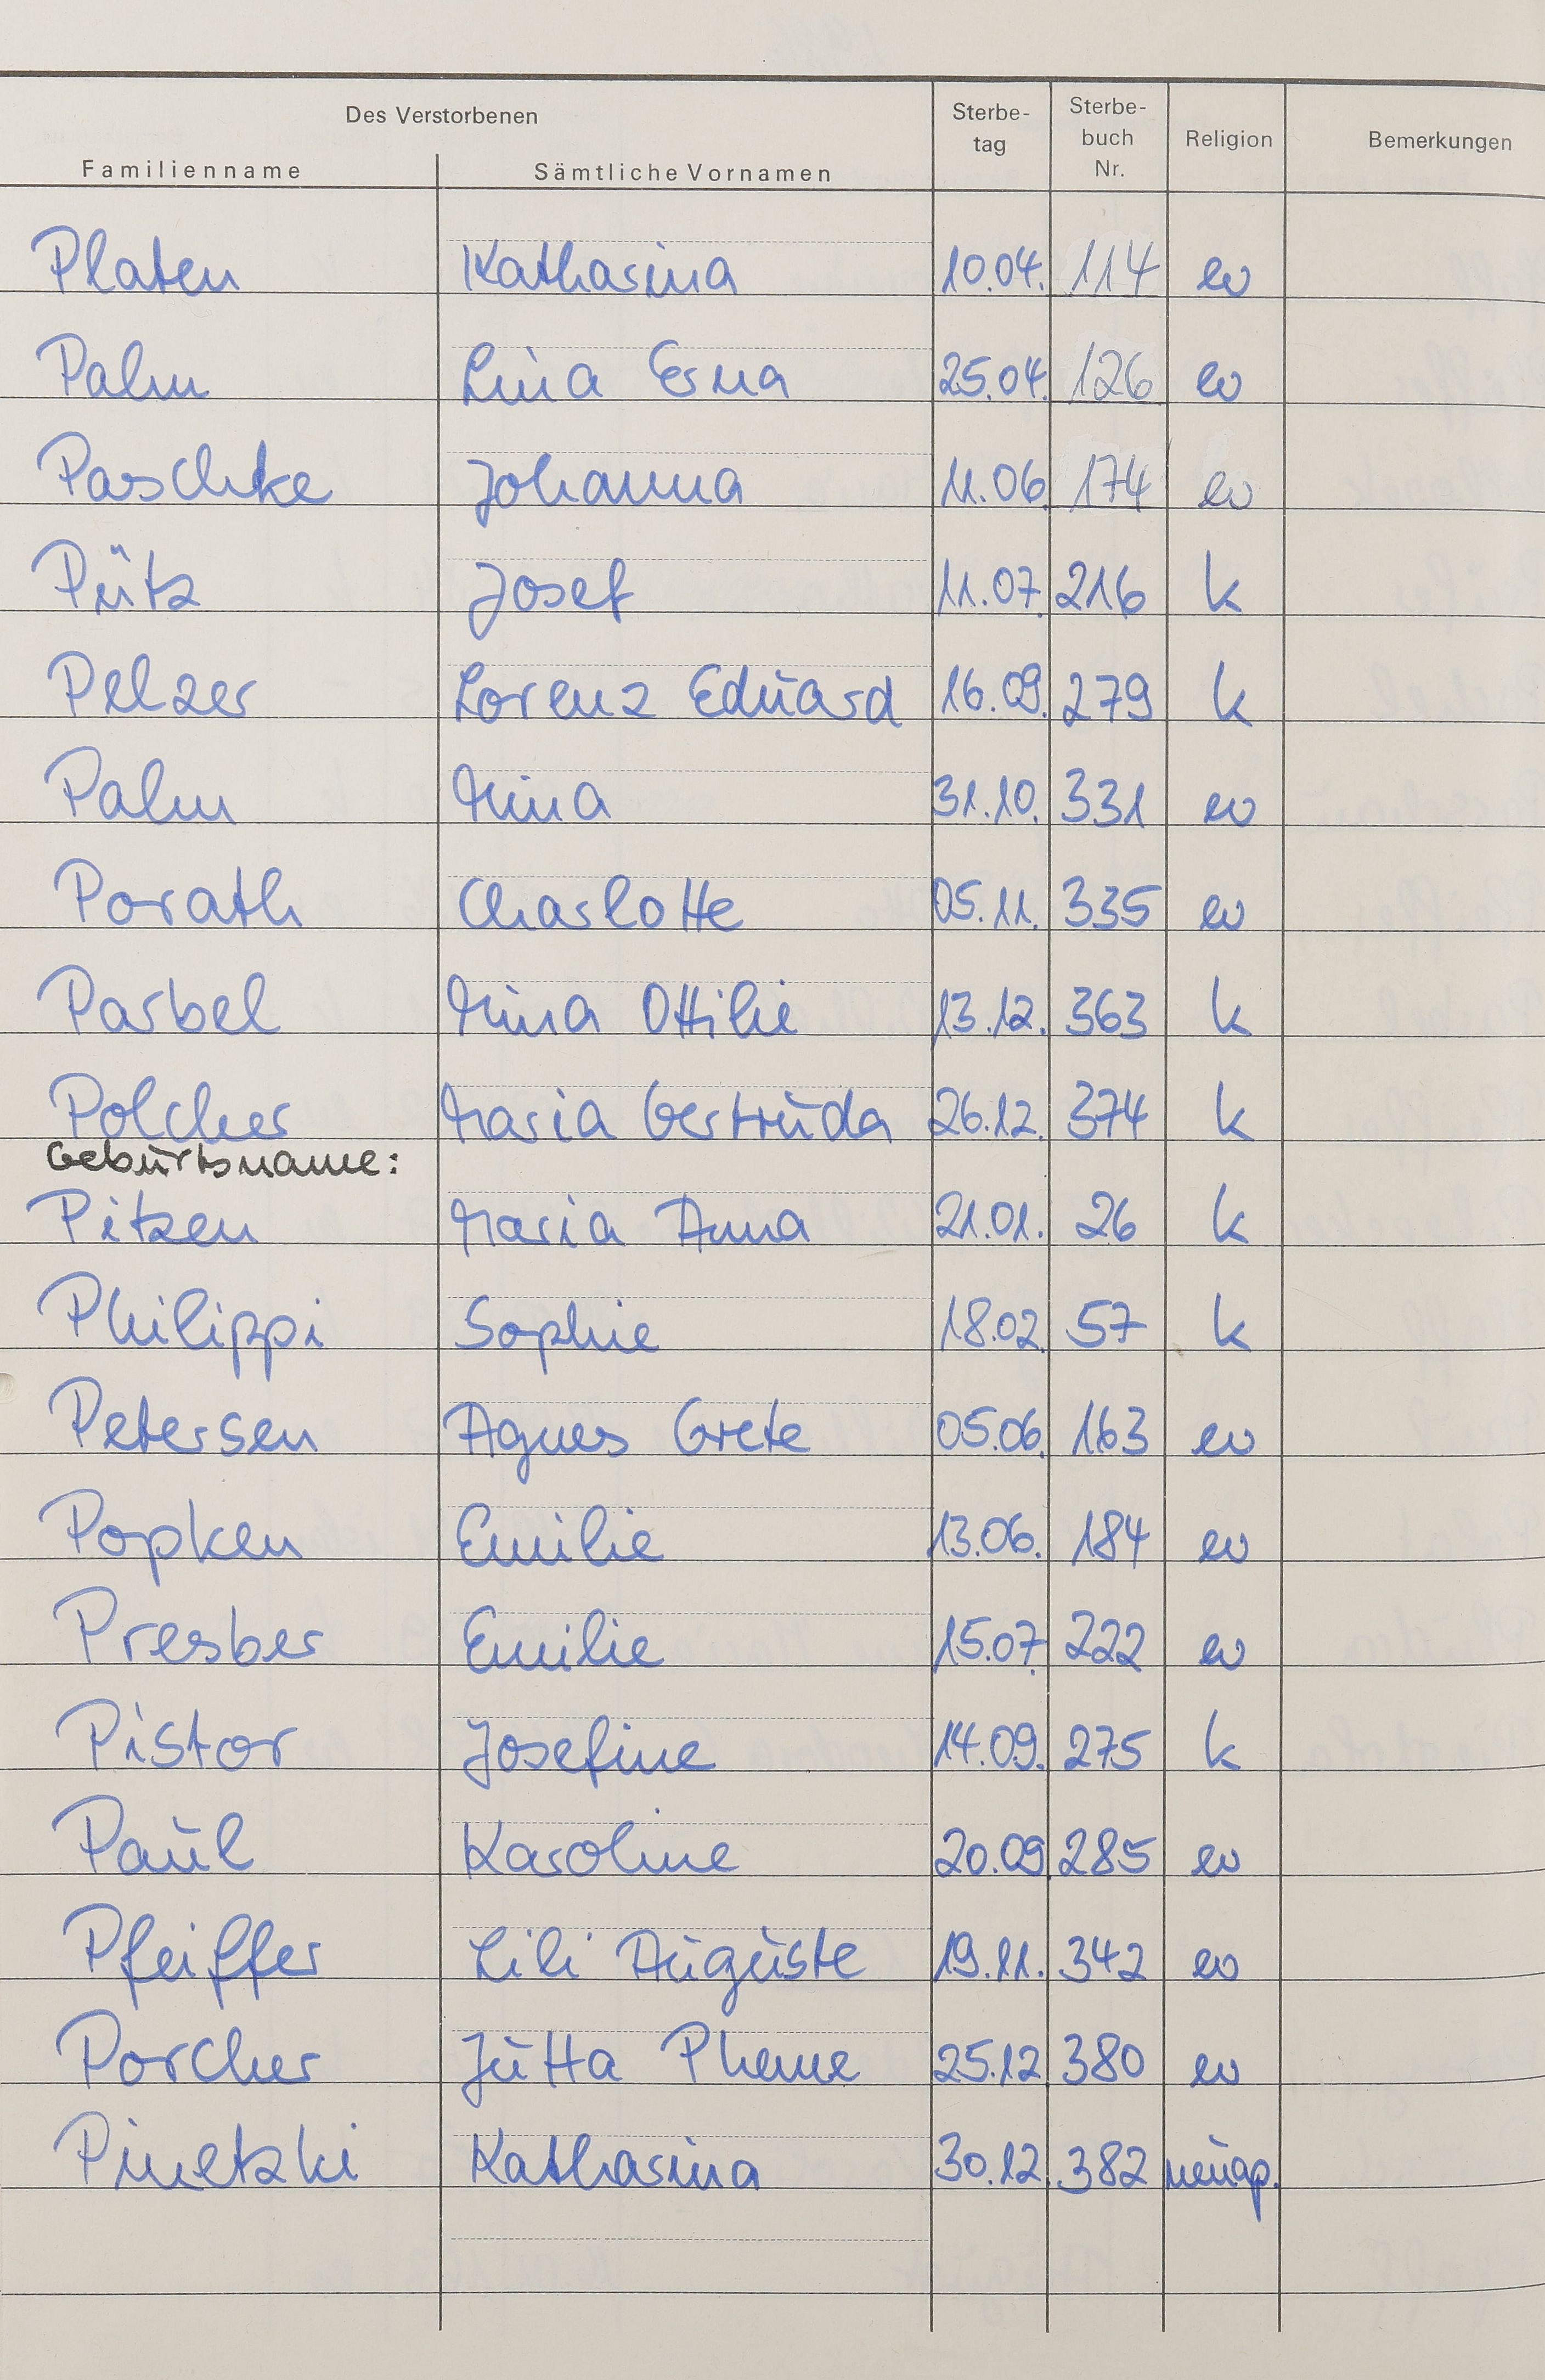 Des Verstorbenen Sterbe- Sterbe-
tag buch Religion Bemerkungen
Familienname Sämtliche Vornamen Nr.
Platen Katharina 10.04. 114 ev
Palm Lina Erna 25.04. 126 ev
Paschke Johanna 11.06. 174 ev
Pütz Josef 11.07. 216 k
Pelzer Lorenz Eduard 16.09. 279 k
Palm Mina 31.10. 331 ev
Porath Charlotte 05.11. 335 ev
Parbel Mina Ottilie 13.12. 363 k
Polcher Maria Gertruda 26.12. 374 k
Geburtsname:
Pitzen Maria Anna 21.01. 26 k
Philippi Sophie 18.02. 57 k
Petersen Agnes Grete 05.06. 163 ev
Popken Emilie 13.06. 184 ev
Presber Emilie 15.07. 222 ev
Pistor Josefine 14.09. 275 k
Paul Karoline 20.09. 285 ev
Pfeiffer Lili Auguste 19.11. 342 ev
Porcher Jutta Pheme 25.12. 380 ev
Pinetzki Katharina 30.12. 382 neuap.